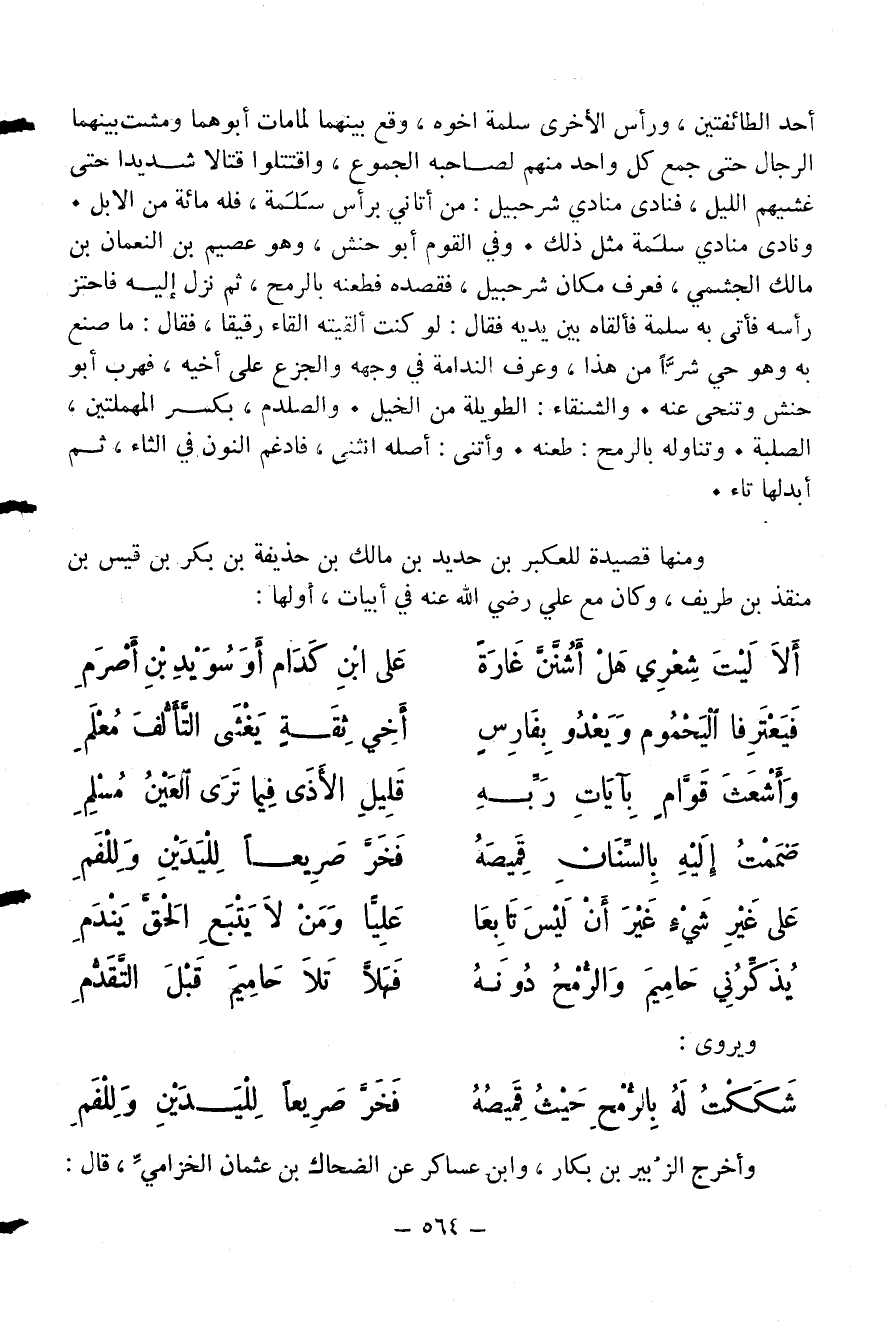 أحد الطائفتين ، ورأس الأخرى سلمة اخوه ، وقع بينهما لمامات أبوهما ومشت بينهما
الرجال حتى جمع كل واحد منهم لصاحبه الجموع ، واقتتلوا قتالا شديدا حتى
غشيهم الليل ، فنادى منادي شرحبيل : من أتاني برأس سَلَمة ، فله مائة من الابل •
ونادى منادي سلَمة مثل ذلك • وفي القوم أبو حنش ، وهو عصيم بن النعمان بن
مالك الجشمي ، فعرف مكان شرحبيل ، فقصده فطعنه بالرمح ، ثم نزل إليه فاحتز
رأسه فأتى به سلمة فألقاه بين يديه فقال : لو كنت ألقيته القاء رقيقا ، فقال : ما صنع
به وهو حي شرّاً من هذا ، وعرف الندامة في وجهه والجزع على أخيه ، فهرب أبو
حنش وتنحى عنه • والشنقاء : الطويلة من الخيل • والصلدم ، بكسر المهملتين ،
الصلبة • وتناوله بالرمح : طعنه • وأتنى : أصله انثنى ، فادغم النون في الثاء ، ثم
أبدلها تاء •
ومنها قصيدة للعكبر بن حديد بن مالك بن حذيفة بن بكر بن قيس بن
منقذ بن طريف ، وكان مع علي رضي الله عنه في أبيات ، أولها :
أَلاَ لَيْتَ شِعْرِي هَلْ أَشُنَّنَّ غَارَةً عَلى ابْنِ كَدَامٍ أَوْ سُوَيْدِ بْنِ أَصْرَمِ
فَيَعْتَرِفا اَلْيَحْمُوم وَيَعْدُو بِفَارِسٍ أَخِي ثِقَةٍ يَغْثَى التَّأَلُّفَ مُعْلَمِ
وَأَشْعَثَ قَوَّامٍ بِآيَاتِ رَبِّهِ قَلِيلِ الأَذَى فِيما تَرَى اَلْعَيْنُ مُسْلِمِ
ضَمَمْتُ إِلَيْهِ بِالسِّنَانِ قَمِيصَهُ فَخَرَّ صَرِيعاً لِلْيَدَيْنِ وَلِلْفَمِ
عَلى غَيْرِ شَيْءٍ غَيْرَ أَنْ لَيْسَ تَابِعَا عَلِيًّا وَمَنْ لاَ يَتْبَعِ الْحَقَّ يَنْدَمِ
يُذَكِّرُنِي حَامِيمَ وَالرُّمْحُ دُونَهُ فَهَلاَّ تَلاَ حَامِيمَ قَبْلَ التَّقَدُّمِ
ويروى :
شَكَكْتُ لَهُ بِالرُّمْحِ حَيْثُ قَمِيصُهُ فَخَرَّ صَرِيعاً لِلْيَدَيْنِ وَلِلْفَمِ
وأخرج الزُبير بن بكار ، وابن عساكر عن الضحاك بن عثمان الخزاميِّ ، قال :
— ٥٦٤ —